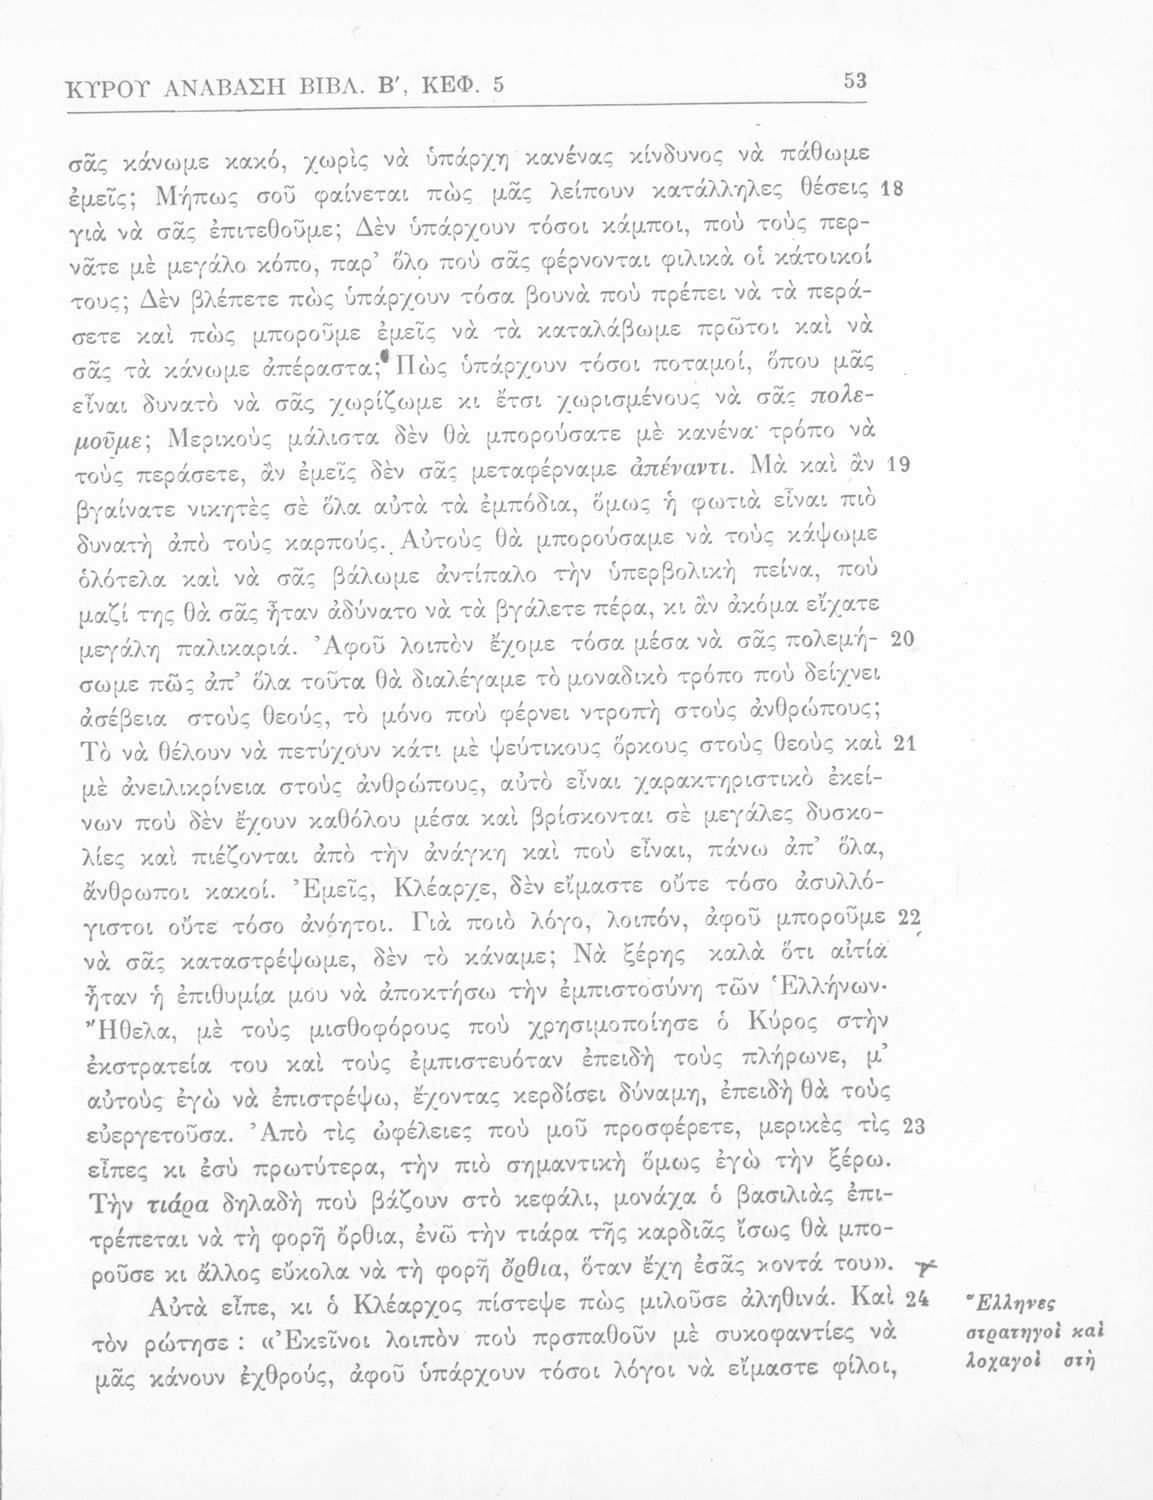 ΚΥΡΟΥ ΑΝΑΒΑΣΗ ΒΙΒΛ. Β′, ΚΕΦ. 5 53
σᾶς κάνωμε κακό, χωρὶς νὰ ὑπάρχη κανένας κίνδυνος νὰ πάθωμε
ἐμεῖς; Μήπως σοῦ φαίνεται πὼς μᾶς λείπουν κατάλληλες θέσεις 18
γιὰ νὰ σᾶς ἐπιτεθοῦμε; Δὲν ὑπάρχουν τόσοι κάμποι, ποὺ τοὺς περ-
νᾶτε μὲ μεγάλο κόπο, παρ’ ὅλο ποὺ σᾶς φέρνονται φιλικὰ οἱ κάτοικοί
τους; Δὲν βλέπετε πὼς ὑπάρχουν τόσα βουνὰ ποὺ πρέπει νὰ τὰ περά-
σετε καὶ πὼς μποροῦμε ἐμεῖς νὰ τὰ καταλάβωμε πρῶτοι καὶ νὰ
σᾶς τὰ κάνωμε ἀπέραστα; Πὼς ὑπάρχουν τόσοι ποταμοί, ὅπου μᾶς
εἶναι δυνατὸ νὰ σᾶς χωρίζωμε κι ἔτσι χωρισμένους νὰ σᾶς πολε-
μοῦμε; Μερικοὺς μάλιστα δὲν θὰ μπορούσατε μὲ κανένα τρόπο νὰ
τοὺς περάσετε, ἂν ἐμεῖς δὲν σᾶς μεταφέρναμε ἀπέναντι. Μὰ καὶ ἂν 19
βγαίνατε νικητὲς σὲ ὅλα αὐτὰ τὰ ἐμπόδια, ὅμως ἡ φωτιὰ εἶναι πιὸ
δυνατὴ ἀπὸ τοὺς καρπούς. Αὐτοὺς θὰ μπορούσαμε νὰ τοὺς κάψωμε
ὁλότελα καὶ νὰ σᾶς βάλωμε ἀντίπαλο τὴν ὑπερβολικὴ πείνα, ποὺ
μαζί της θὰ σᾶς ἦταν ἀδύνατο νὰ τὰ βγάλετε πέρα, κι ἂν ἀκόμα εἴχατε
μεγάλη παλικαριά. Ἀφοῦ λοιπὸν ἔχομε τόσα μέσα νὰ σᾶς πολεμή- 20
σωμε πῶς ἀπ’ ὅλα τοῦτα θὰ διαλέγαμε τὸ μοναδικὸ τρόπο ποὺ δείχνει
ἀσέβεια στοὺς θεούς, τὸ μόνο ποὺ φέρνει ντροπὴ στοὺς ἀνθρώπους;
Τὸ νὰ θέλουν νὰ πετύχουν κάτι μὲ ψεύτικους ὅρκους στοὺς θεοὺς καὶ 21
μὲ ἀνειλικρίνεια στοὺς ἀνθρώπους, αὐτὸ εἶναι χαρακτηριστικὸ ἐκεί-
νων ποὺ δὲν ἔχουν καθόλου μέσα καὶ βρίσκονται σὲ μεγάλες δυσκο-
λίες καὶ πιέζονται ἀπὸ τὴν ἀνάγκη καὶ ποὺ εἶναι, πάνω ἀπ’ ὅλα,
ἄνθρωποι κακοί. Ἐμεῖς, Κλέαρχε, δὲν εἴμαστε οὔτε τόσο ἀσυλλό-
γιστοι οὔτε τόσο ἀνόητοι. Γιὰ ποιὸ λόγο, λοιπόν, ἀφοῦ μποροῦμε 22
νὰ σᾶς καταστρέψωμε, δὲν τὸ κάναμε; Νὰ ξέρης καλὰ ὅτι αἰτία
ἦταν ἡ ἐπιθυμία μου νὰ ἀποκτήσω τὴν ἐμπιστοσύνη τῶν Ἑλλήνων·
Ἤθελα, μὲ τοὺς μισθοφόρους ποὺ χρησιμοποίησε ὁ Κύρος στὴν
ἐκστρατεία του καὶ τοὺς ἐμπιστευόταν ἐπειδὴ τοὺς πλήρωνε, μ’
αὐτοὺς ἐγὼ νὰ ἐπιστρέψω, ἔχοντας κερδίσει δύναμη, ἐπειδὴ θὰ τοὺς
εὐεργετοῦσα. Ἀπὸ τὶς ὠφέλειες ποὺ μοῦ προσφέρετε, μερικὲς τὶς 23
εἶπες κι ἐσὺ πρωτύτερα, τὴν πιὸ σημαντικὴ ὅμως ἐγὼ τὴν ξέρω.
Τὴν τιάρα δηλαδὴ ποὺ βάζουν στὸ κεφάλι, μονάχα ὁ βασιλιὰς ἐπι-
τρέπεται νὰ τὴ φορῆ ὄρθια, ἐνῶ τὴν τιάρα τῆς καρδιᾶς ἴσως θὰ μπο-
ροῦσε κι ἄλλος εὔκολα νὰ τὴ φορῆ ὄρθια, ὅταν ἔχη ἐσᾶς κοντά του».
Αὐτὰ εἶπε, κι ὁ Κλέαρχος πίστεψε πὼς μιλοῦσε ἀληθινά. Καὶ 24
τὸν ρώτησε : «Ἐκεῖνοι λοιπὸν ποὺ πρσπαθοῦν μὲ συκοφαντίες νὰ
μᾶς κάνουν ἐχθρούς, ἀφοῦ ὑπάρχουν τόσοι λόγοι νὰ εἴμαστε φίλοι,
Ἕλληνες
στρατηγοὶ καὶ
λοχαγοὶ στὴ